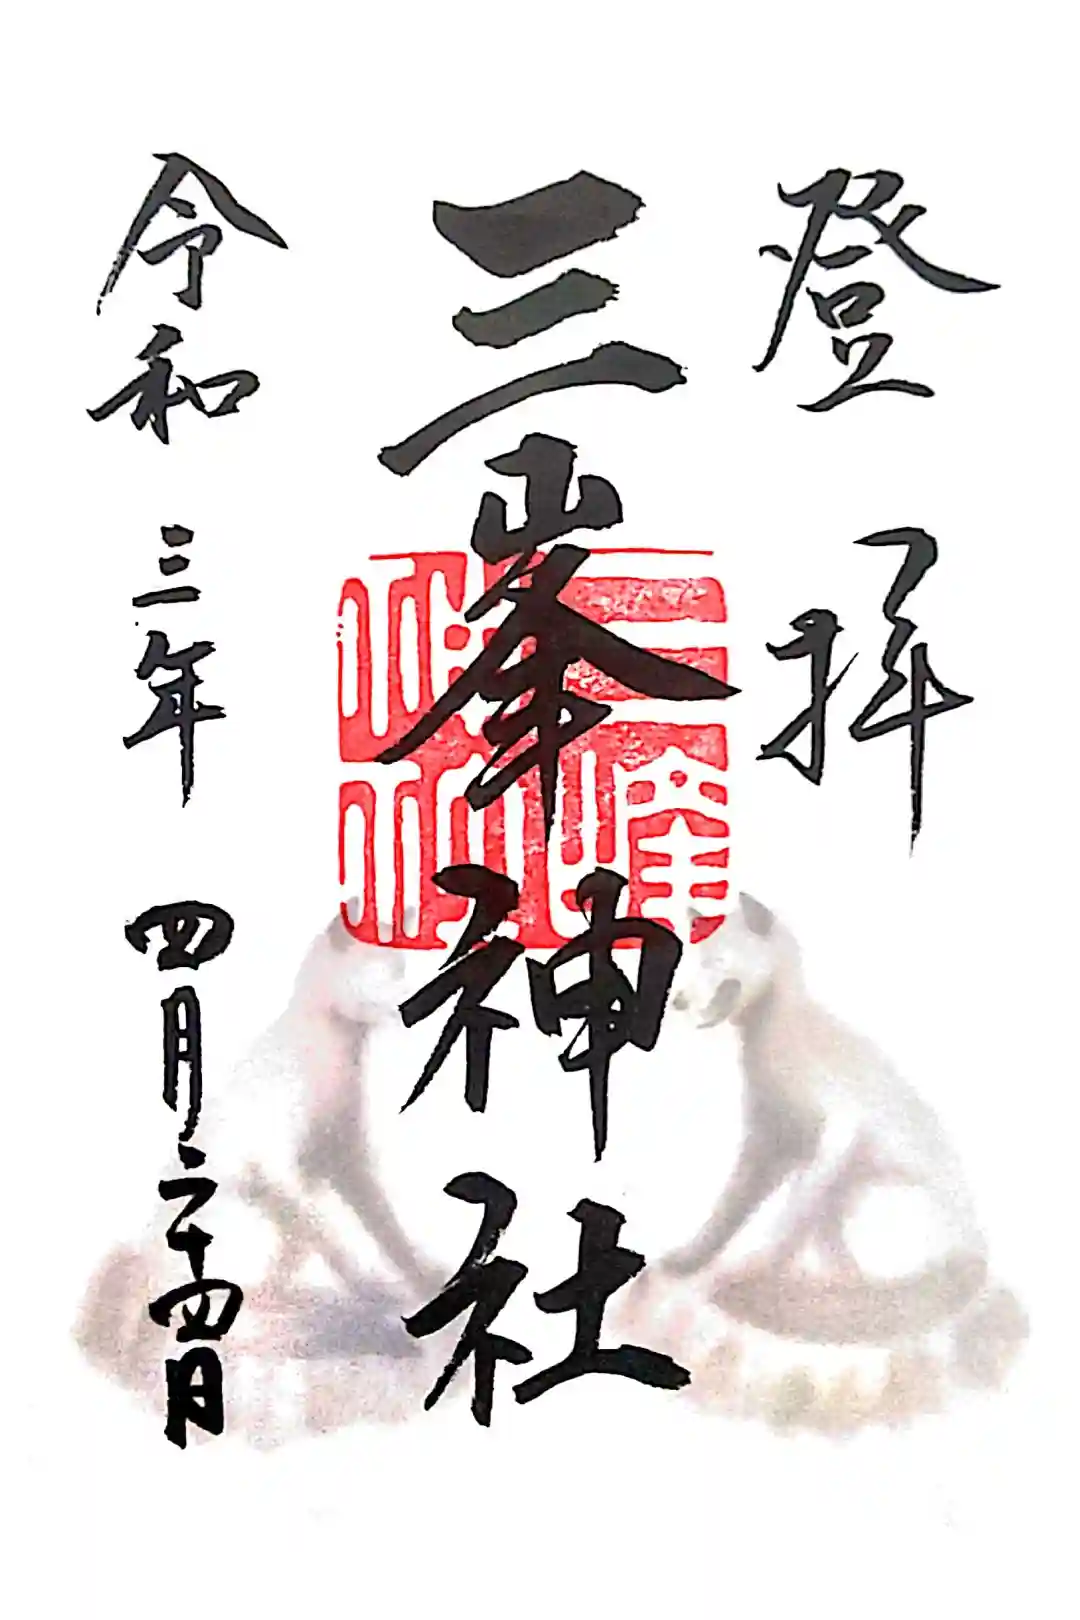 登拝
三峯神社
令和三年四月二十四日
三峰
神社